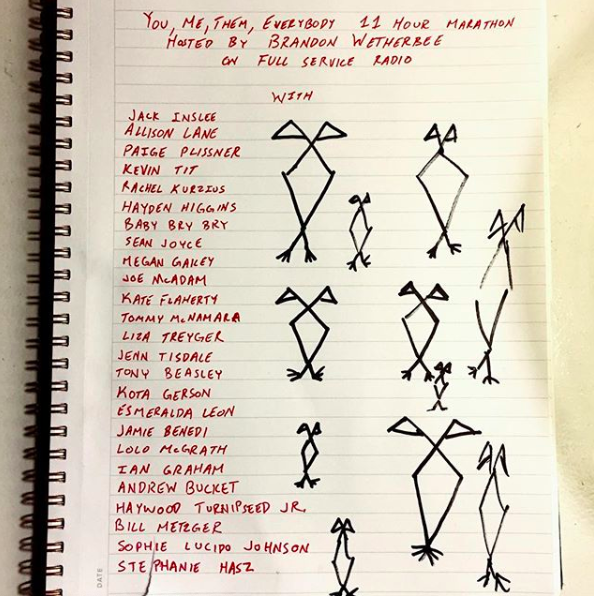 YOU, ME, THEM, EVERYBODY 11 HOUR MARATHON
HOSTED BY BRANDON WETHERBEE
ON FULL SERVICE RADIO
WITH
JACK INSLEE
ALLISON LANE
PAIGE PLISSNER
KEVIN TIT
RACHEL KURZIUS
HAYDEN HIGGINS
BABY BRY BRY
SEAN JOYCE
MEGAN GAILEY
JOE McADAM
KATE FLAHERTY
TOMMY McNAMARA
LIZA TREYGER
JENN TISDALE
TONY BEASLEY
KOTA GERSON
ESMERALDA LEON
JAMIE BENEDI
LOLO McGRATH
IAN GRAHAM
ANDREW BUCKET
HAYWOOD TURNIPSEED JR.
BILL METZGER
SOPHIE LUCIDO JOHNSON
STEPHANIE HASZ
DATE